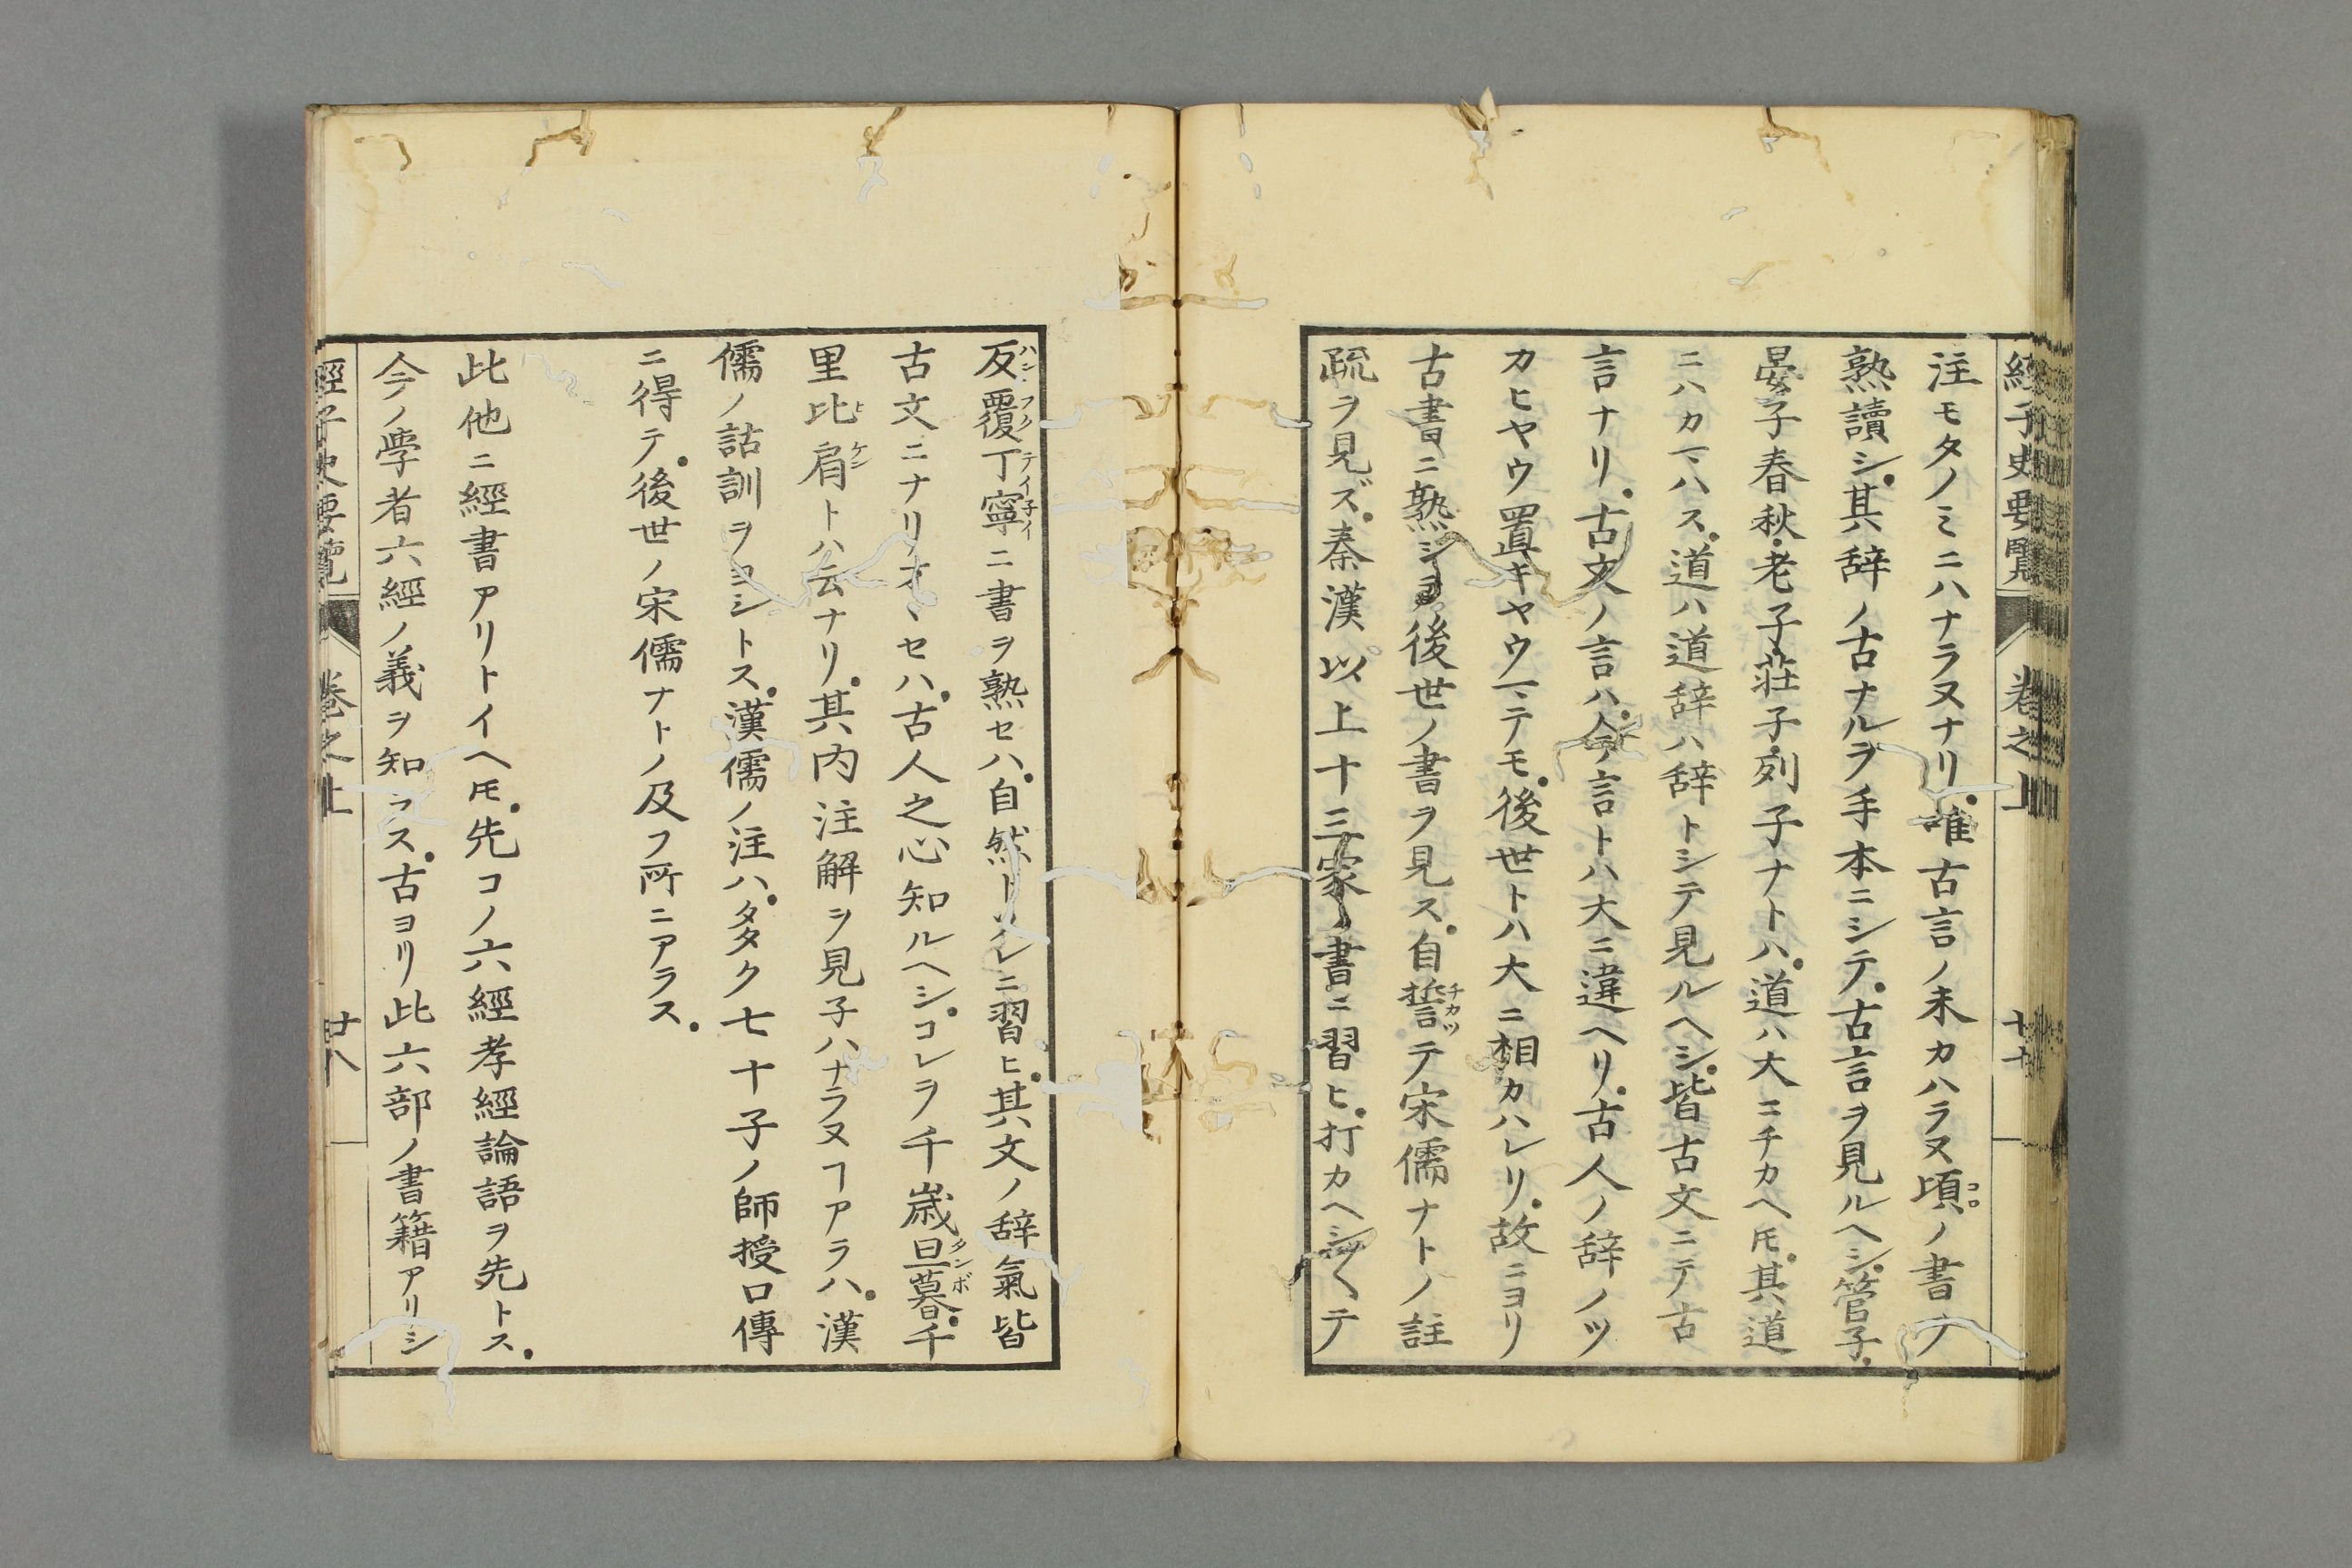 經子史要覧 卷之上
注モタノミニハナラヌナリ。唯古言ノ未カハラヌ頃ノ書ヲ
熟讀シ。其辞ノ古ナルヲ手本ニシテ。古言ヲ見ルヘシ。管子。
晏子春秋。老子。莊子。列子ナトハ。道ハ大ニチカヘ𪜈。其道
ニハカヽハス。道ハ道辞ハ辞トシテ見ルヘシ。皆古文ニテ古
言ナリ。古文ノ言ハ。今ノ言トハ大ニ違ヘリ。古人ノ辞ノツ
カヒヤウ置キヤウマテモ。後世トハ大ニ相カハレリ。故ニヨリ
古書ニ熟シ。後世ノ書ヲ見ス。自誓テ宋儒ナトノ註
チカツ
コロ
疏ヲ見ズ。秦漢以上十三家ノ書ニ習ヒ。打カヘシ〱テ
反覆丁寧ニ書ヲ熟セハ。自然トソレニ習ヒ。其文ノ辞氣皆
ハンフク テイ子イ
古文ニナリオヽセハ。古人之心知ルヘシ。コレヲ千歳旦暮。千
タンボ
里比肩トハ云ナリ。其内注解ヲ見子ハナラヌヿアラハ。漢
ヒケン
儒ノ詁訓ヲヨシトス。漢儒ノ注ハ。多ク七十子ノ師授口傳
ニ得テ。後世ノ宋儒ナトノ及フ所ニアラス。
此他ニ經書アリトイヘ𪜈。先コノ六經孝經論語ヲ先トス。
今ノ學者六經ノ義ヲ知ラス。古ヨリ此六部ノ書籍アリシ
經子史要覽 卷之上 廿八